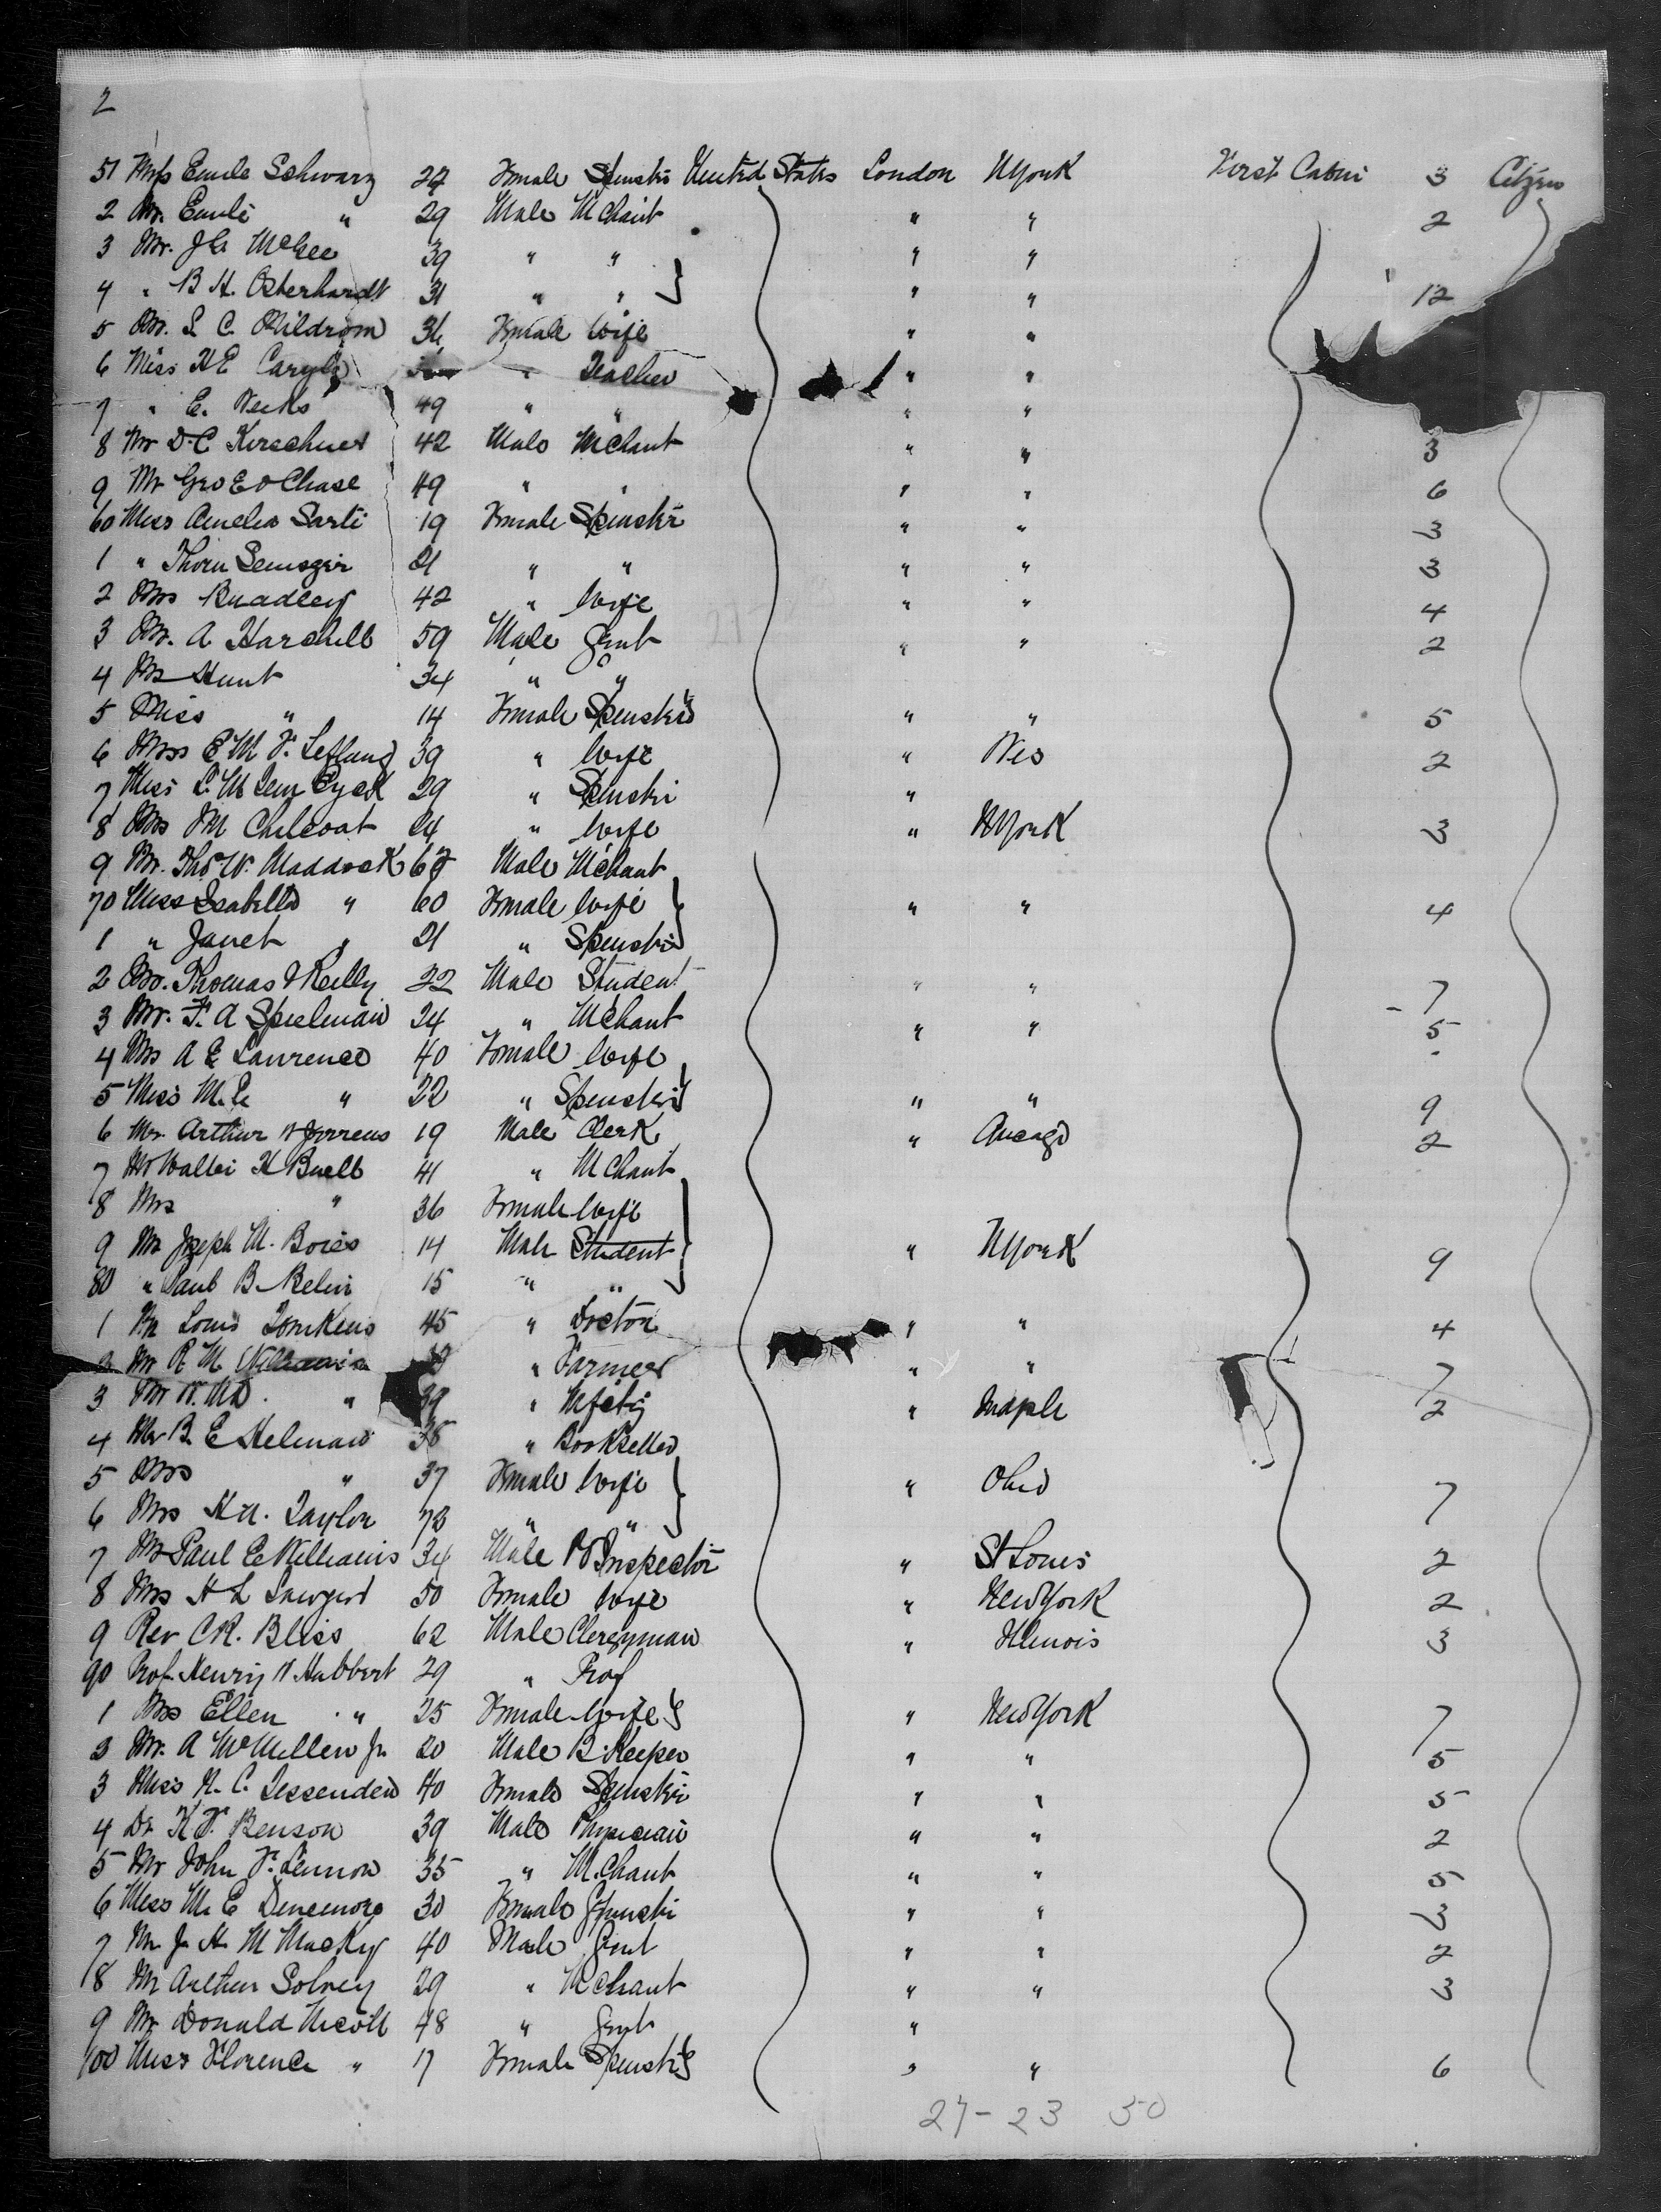 2
51 Miss Emile Schwarz 27 Female Spinster United States London N York First Cabin 3 Citizen
2 Mr. Emile " 29 Male Mchant " " 2
3 Mr. J C. McGee 39 " " " "
4 " B H. Osterhardt 31 " " " " 12
5 Mrs. S. C. Mildrom 36 Female Wife " "
6 Miss H E Caryl " Teacher " "
7 " E. Weeks 49 " " " "
8 Mr D. C Kerschner 42 Male Mchant " " 3
9 Mr Geo E O Chase 49 " " " " 6
60 Miss Amelia Sarti 19 Female Spinster " " 3
1 " Thora 21 " " " " 3
2 Mrs Bradley 42 " Wife " " 4
3 Mr. A Harchell 59 Male Gent " " 2
4 Mr Hunt 34 " "
5 Miss " 14 Female Spinster " " 5
6 Mrs E M F. 39 " Wife " 2
7 Miss L. M Ten Eyck 29 " Spinster "
8 Mrs M Chilcoat 24 " Wife " N York 3
9 Mr. Thos W. Maddock 67 Male Mchant
70 Miss Isabella " 60 Female Wife " " 4
1 " Janet " 21 " Spinster
2 Mr. Thomas F Reilly 22 Male Student " " 7
3 Mr. F. A Spielman 24 " Mchant " " 5
4 Mrs A E Lawrence 40 Female Wife
5 Miss M. E " 22 " Spinster " " 9
6 Mr. Arthur W Torrens 19 Male Clerk " Chicago 2
7 Mr Walter H Buell 41 " Mchant
8 Mrs " 36 Female Wife
9 Mr Joseph M. Boies 14 Male Student " N York 9
80 " Paul B Belin 15 " "
1 Mr Louis Tomkins 45 " Doctor " " 4
2 Mr R. M. Williams " Farmer " " 7
3 Mr W. M " 39 " " Maple 2
4 Mr B. E Helman 38 " Bookseller
5 Mrs " 37 Female Wife " Ohio 7
6 Mrs H A. Taylor 73 " "
7 Mr Paul E Williams 34 Male P O Inspector " St Louis 2
8 Mrs H L Sawyer 50 Female Wife " New York 2
9 Rev C R. Bliss 62 Male Clergyman " Illinois 3
90 Prof. Henry W. Hubbert 29 " Prof
1 Mrs Ellen " 25 Female Wife " New York 7
2 Mr. A McMullen Jr. 20 Male B. Keeper " " 5
3 Miss N. C. Fessenden 40 Female Spinster " " 5
4 Dr K. F. Benson 39 Male Physician " " 2
5 Mr John F. Lennon 35 " Mchant " " 5
6 Miss M. E Dinsmore 30 Female Spinster " " 3
7 Mr J. H. M Macky 40 Male Gent " " 2
8 Mr Arthur Solvey 29 " Mchant " " 3
9 Mr Donald Nicoll 48 " Gent "
100 Miss Florence " 17 Female Spinster " " 6
27 - 23 50